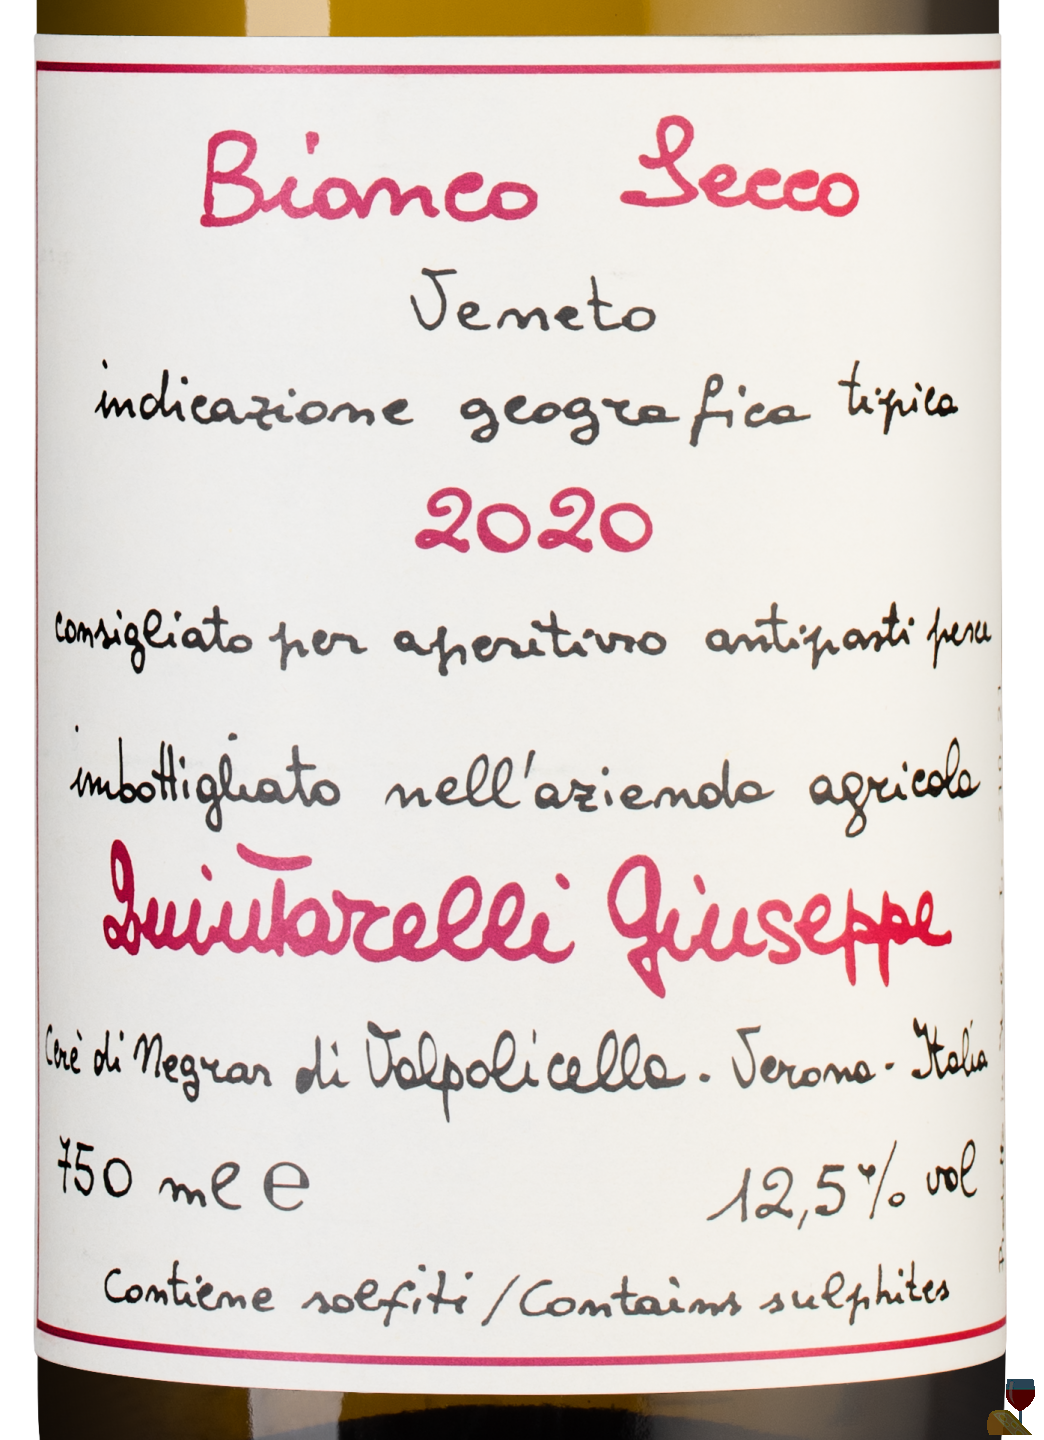 Bianco Secco
Veneto
indicazione geografica tipica
2020
consigliato per aperitivo antipasti pesce
imbottigliato nell'azienda agricola
Quintarelli Giuseppe
Cerè di Negrar di Valpolicella - Verona - Italia
750 ml e
12,5% vol
Contiene solfiti / Contains sulphites